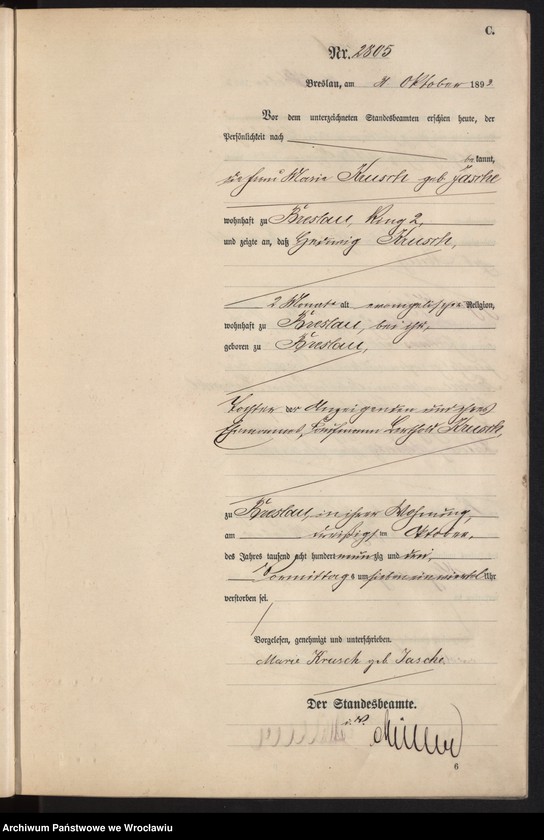 C.
Nr. 2805
Breslau, am 31 Oktober 1893
Vor dem unterzeichneten Standesbeamten erschien heute, der
Persönlichkeit nach
bekannt,
die Frau Marie Krusch geb. Jasche
wohnhaft zu Breslau, Ring 2,
und zeigte an, daß Hedwig Krusch,
2 Monate alt evangelischer Religion,
wohnhaft zu Breslau, bei ihr,
geboren zu Breslau,
Tochter der Anzeigenden und ihres
Ehemannes, Kaufmann Berthold Krusch,
zu Breslau, in ihrer Wohnung,
am dreißigsten Oktober,
des Jahres tausend acht hundert neunzig und drei,
Vormittags um sieben ein viertel Uhr
verstorben sei.
Vorgelesen, genehmigt und unterschrieben.
Marie Krusch geb. Jasche.
Der Standesbeamte.
6
Archiwum Państwowe we Wrocławiu